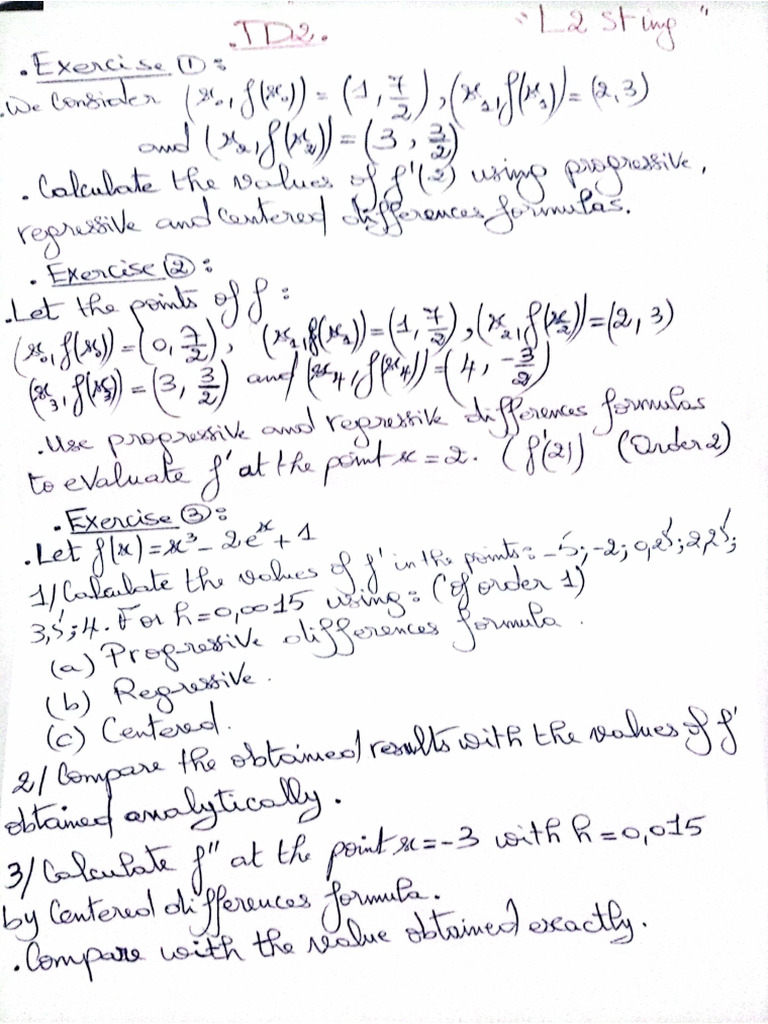 .TD2. "L2 sting"
. Exercise ①:
.We Consider (x₀, f(x₀)) = (1, 7/2), (x₁, f(x₁)) = (2, 3)
and (x₂, f(x₂)) = (3, 3/2)
. Calculate the values of f'(2) using progressive,
regressive and centered differences formulas.
. Exercise ②:
.Let the points of f :
(x₀, f(x₀)) = (0, 7/2), (x₁, f(x₁)) = (1, 7/2), (x₂, f(x₂)) = (2, 3)
(x₃, f(x₃)) = (3, 3/2) and (x₄, f(x₄)) = (4, -3/2)
.Use progressive and regressive differences formulas
to evaluate f' at the point x = 2. (f'(2)) (Order 2)
. Exercise ③:
.Let f(x) = x³ - 2eˣ + 1
1/ Calculate the values of f' in the points: -5; -2; 0,25; 2,25;
3,5; 4. For h = 0,0015 using: (of order 1)
(a) Progressive differences formula.
(b) Regressive.
(c) Centered.
2/ Compare the obtained results with the values of f'
obtained analytically.
3/ Calculate f" at the point x = -3 with h = 0,015
by Centered differences formula.
. Compare with the value obtained exactly.